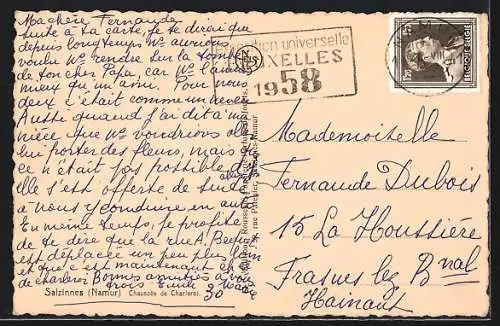 Ma chère Fernande
Suite à ta carte, je te dirai que
depuis longtemps Ns aurions
voulu Ns rendre sur la tombe
de ton cher Papa, car Ns l'aimions
mieux qu'un ami. Pour nous
deux c'était comme un neveu
Aussi quand j'ai dit à ma
nièce que Ns voudrions aller
lui porter des fleurs, mais que
ce n'était pas possible
elle s'est offerte de suite
à nous y conduire en auto
En même temps, je profite
de te dire que la rue A.
est déplacée un peu plus loin
et que c'est maintenant
de Charleroi Bonnes amitiés à vous
trois Emile Marie
30
Salzinnes (Namur) Chaussée de Charleroi.
Exposition universelle
BRUXELLES
1958
NAMUR
BELGIQUE BELGIË
Mademoiselle
Fernande Dubois
15 La Houssière
Frasnes lez Bnal
Hainaut